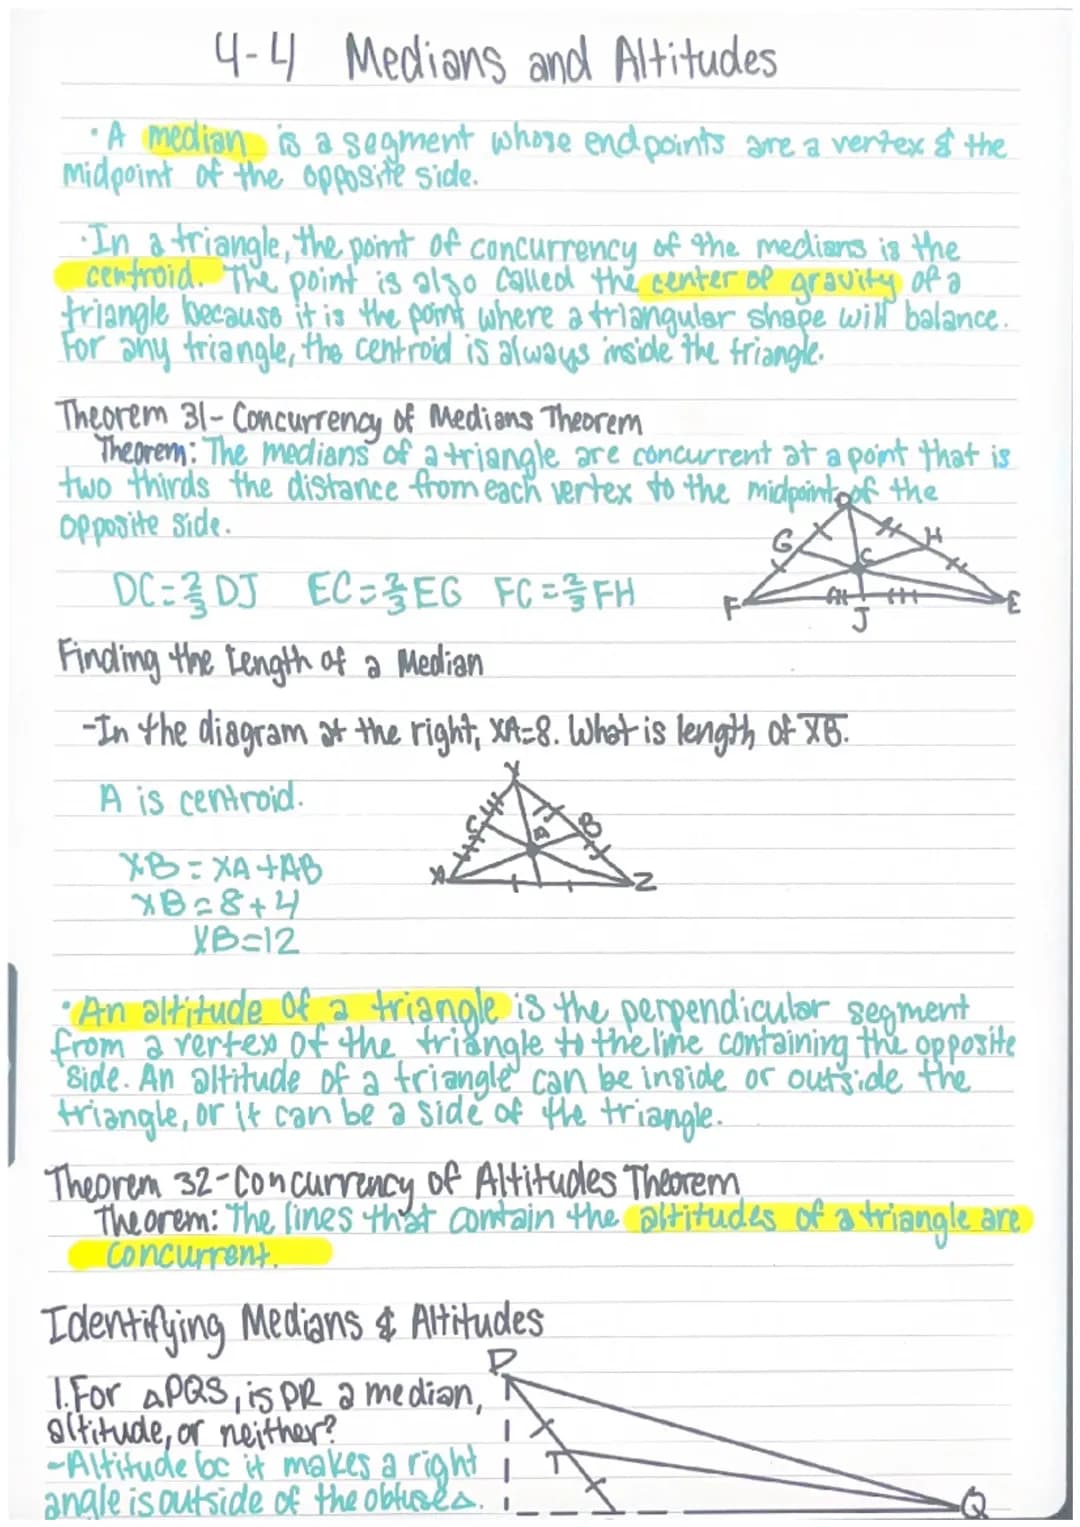 4-4 Medians and Altitudes
• A median is a segment whose endpoints are a vertex & the
midpoint of the opposite side.
• In a triangle, the point of concurrency of the medians is the
centroid. The point is also called the center of gravity of a
triangle because it is the point where a triangular shape will balance.
For any triangle, the centroid is always inside the triangle.
Theorem 31- Concurrency of Medians Theorem
Theorem: The medians of a triangle are concurrent at a point that is
two thirds the distance from each vertex to the midpoint of the
opposite side.
D
G
H
C
F
E
J
DC=2/3 DJ EC=2/3 EG FC=2/3 FH
Finding the Length of a Median
-In the diagram at the right, XA=8. What is length of XB.
A is centroid.
Y
C
A
B
X
Z
XB = XA + AB
XB = 8+4
XB=12
• An altitude of a triangle is the perpendicular segment
from a vertex of the triangle to the line containing the opposite
side. An altitude of a triangle can be inside or outside the
triangle, or it can be a side of the triangle.
Theorem 32-Concurrency of Altitudes Theorem
Theorem: The lines that contain the altitudes of a triangle are
concurrent.
Identifying Medians & Altitudes
1. For △PQS, is PR a median,
altitude, or neither?
-Altitude bc it makes a right
angle is outside of the obtuse △.
P
T
Q